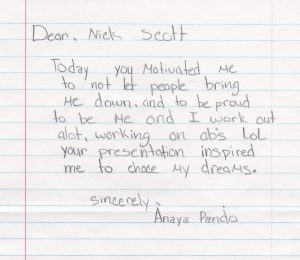 Dear, Nick Scott
Today you Motivated Me
to not let people bring
Me down, and to be proud
to be Me and I work out
alot, working on ab's Lol
your presentation inspired
me to chace My dreams.
sincerely,
Anaya Pando